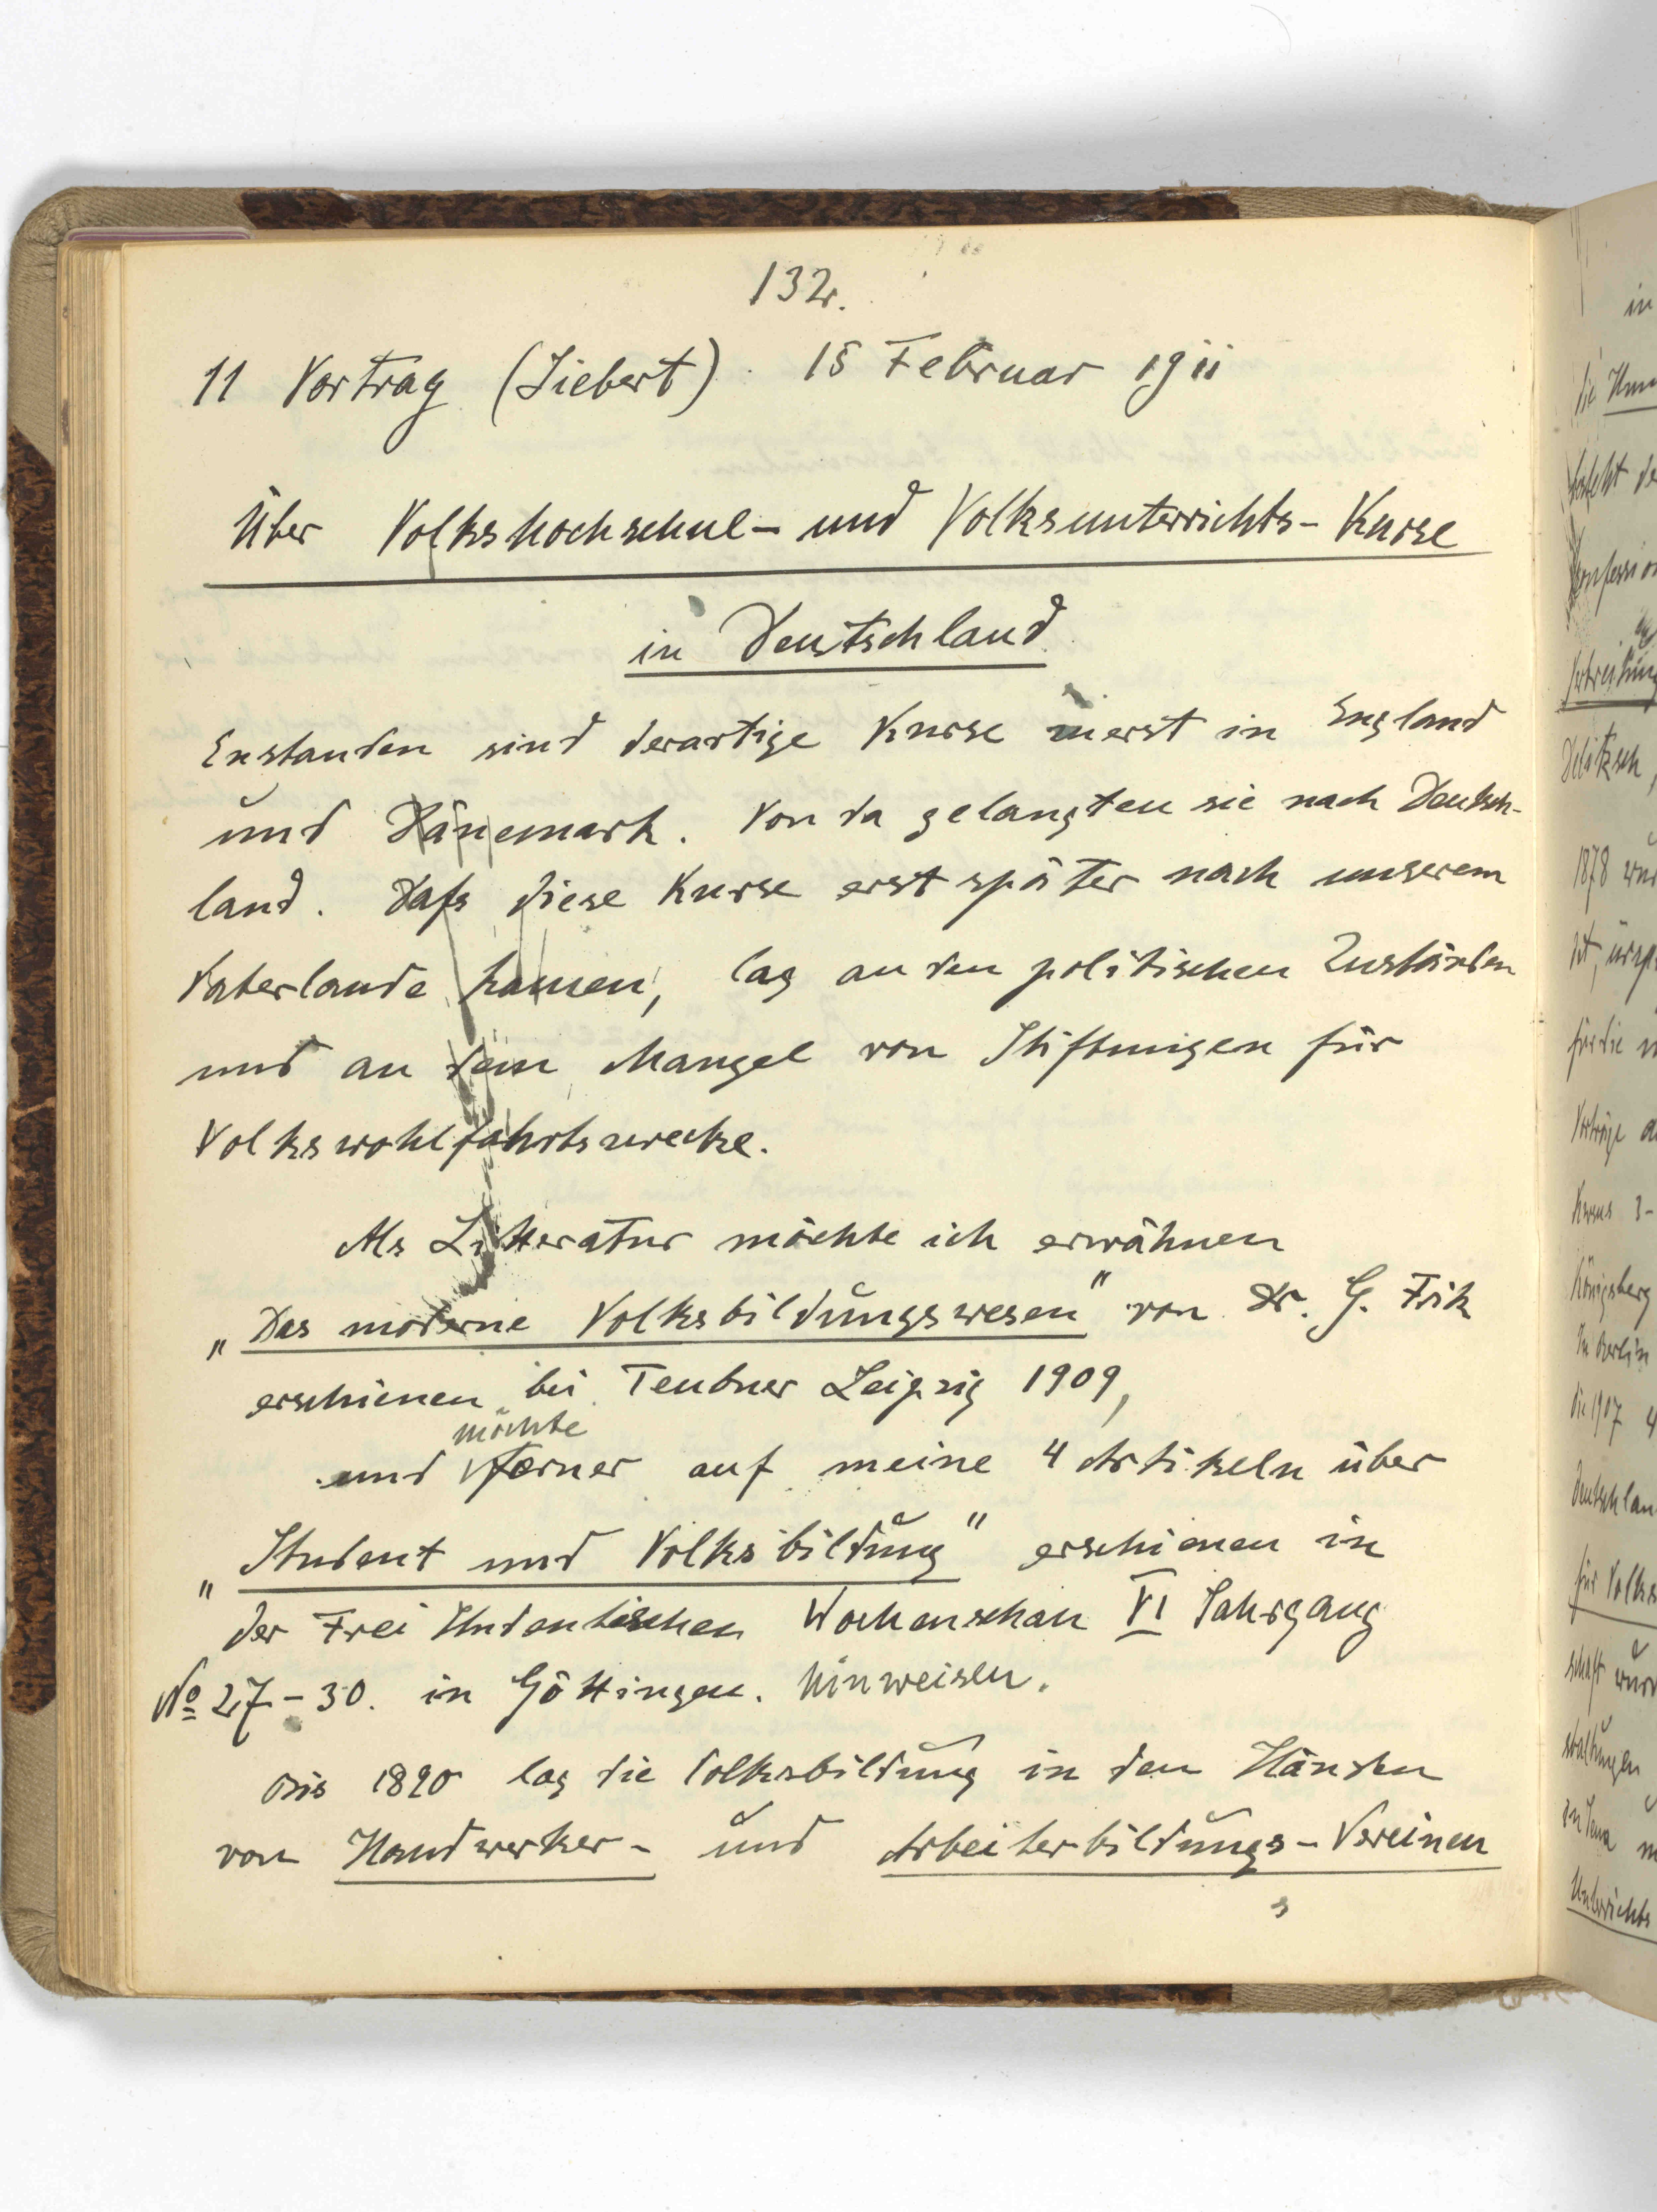 132.
11 Vortrag (Liebert). 15 Februar 1911
Über Volkshochschul- und Volksunterrichts-Kurse
in Deutschland.
Enstanden sind derartige Kurse zuerst in England
und Dänemark. Von da gelangten sie nach Deutsch-
land. Dafs diese Kurse erst später nach unserem
Vaterlande kamen, lag an den politischen Zuständen
und an dem Mangel von Stiftungen für
Volkswohlfahrtszwecke.
Als Litteratur möchte ich erwähnen
„Das moderne Volksbildungswesen" von Dr. G. Frik
erschienen bei Teubner Leipzig 1909,
möchte
und ferner auf meine 4 Artikeln über
„Student und Volksbildung" erschienen in
der Frei Studentischen Wochenschau VI Jahrgang
No 27-30. in Göttingen. hinweisen.
Bis 1890 lag die Volksbildung in den Händen
von Handwerker- und Arbeiterbildungs-Vereinen
in
die
1878
für die
Vorträge
Kursus 3-
Königsberg
In Berlin
die 1907 4
Deutschlan
für Volks
schaft
staltungen
in Jena
Unterrichts